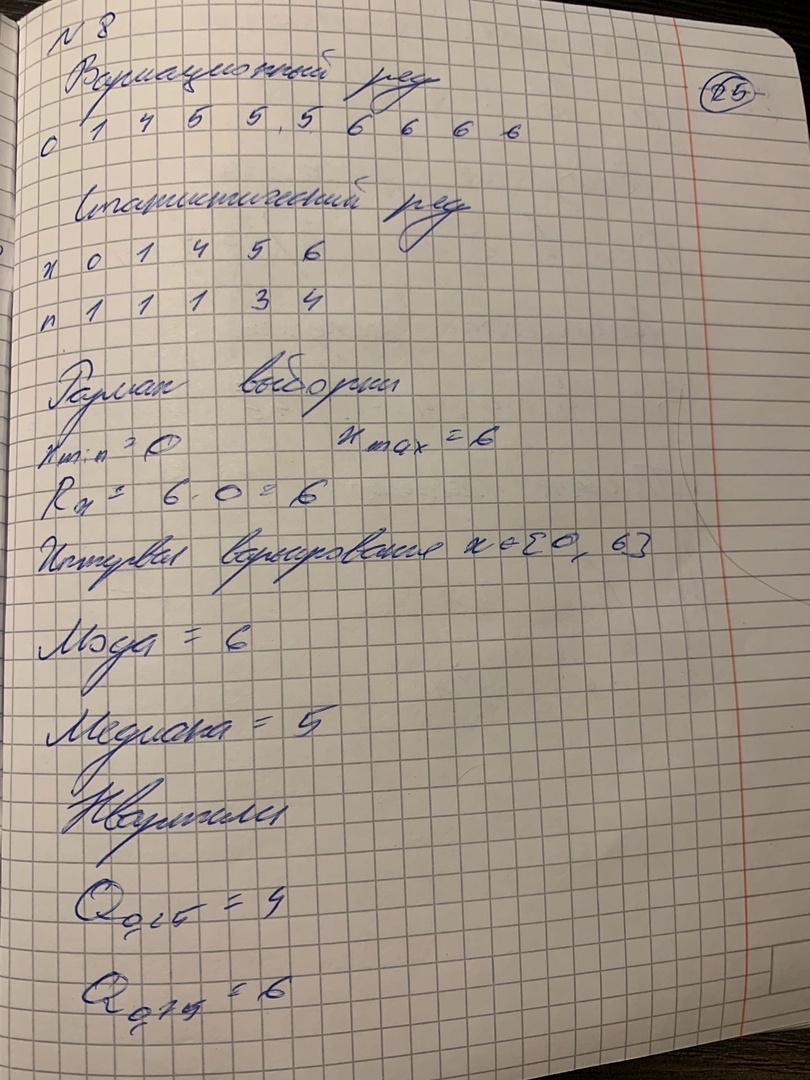 N 8
25
Вариационный ряд
0 1 4 5 5 5 6 6 6 6
Статистический ряд
x 0 1 4 5 6
n 1 1 1 3 4
Размах выборки
x min = 0 x max = 6
Rx = 6 - 0 = 6
Интервал варьирования x ∈ [0, 6]
Мода = 6
Медиана = 5
Квартили
Q0,25 = 4
Q0,75 = 6